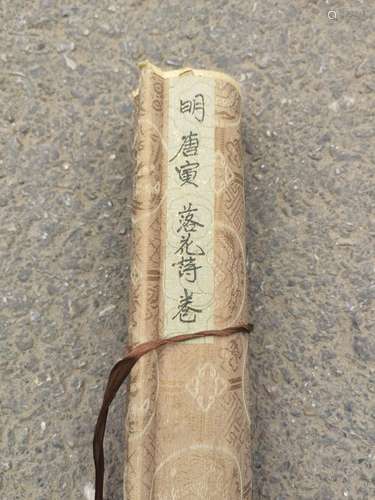 明 唐寅 落花詩卷